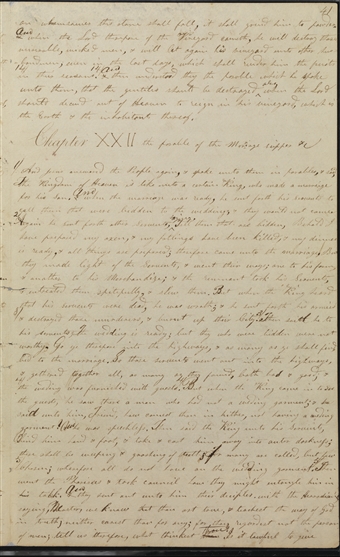 41
on whomsoever this stone shall fall, it shall grind him to powder
when the Lord therefore of the vineyard cometh, he will destroy those
miserable, wicked men, & will let again his vineyard unto other
husbandmen, even in the last days, which shall render him the fruits
in their seasons. & then understood they the parable which he spoke
unto them, that the gentiles should be destroyed also when the Lord
should descend out of Heaven to reign in his vineyard, which is
the Earth & the inhabitants thereof.
Chapter XXII the parable of the Marriage supper &c
& spake unto them in parables
the Kingdom of Heaven is like unto a certain King, who made a marriage
for his son, & when the marriage was ready, he sent forth his servants to
call them that were bidden to the wedding; & they would not come.
Again he sent forth other servants, them that are bidden, Behold I
have prepared my oxen, & my fatlings have been killed, & my dinner
is ready, & all things are prepared; therefore come unto the marriage. But
they made light of the servants, & went their ways, one to his farm,
& another to his Merchandise; & the remnant took his servants,
& entreated them spitefully, & slew them. But when the King heard
that his servants were dead, he was wroth; & he sent forth his armies
& destroyed those murderers, & burnt up their City. Then saith he to
his servants, the wedding is ready, but they who were bidden were not
worthy. Go ye therefore into the highways, & as many as ye shall find
bid to the marriage. So those servants went out into the highways,
& gathered together all, as many as they found, both bad & good; &
the wedding was furnished with guests. But when the King came in to see
the guests, he saw there a man who had not a wedding garment; & he
saith unto him, Friend, how camest thou in hither, not having a wedding
garment? & he was speechless. Then said the King unto his servants,
Bind him hand & foot, & take & cast him away into outer darkness;
there shall be weeping & gnashing of teeth; for many are called, but few
chosen; wherefore all do not have on the wedding garment. Then
went the Pharisees & took council how they might entangle him in
his talk. & they sent out unto him their disciples, with the Herodians
saying, Master, we know that thou art true, & teachest the way of God
in truth, neither carest thou for any; for thou regardest not the person
of men; tell us therefore, what thinkest thou is it lawful to give